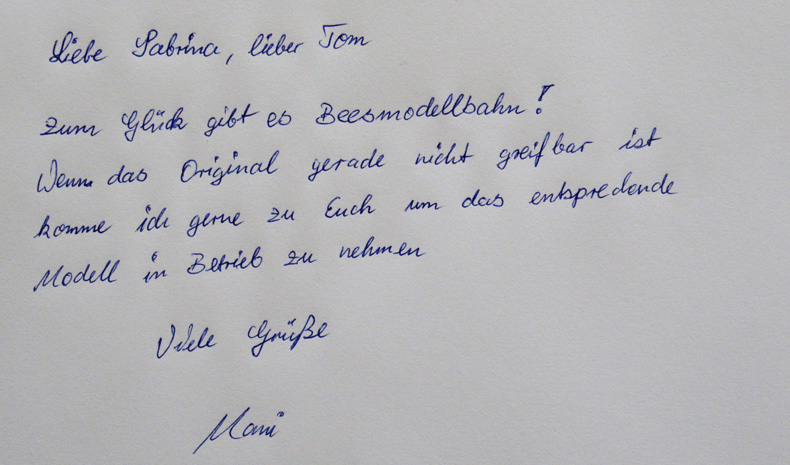 Liebe Sabrina, lieber Tom
zum Glück gibt es Beesmodellbahn!
Wenn das Original gerade nicht greifbar ist
komme ich gerne zu Euch um das entsprechende
Modell in Betrieb zu nehmen
Viele Grüße
Mani